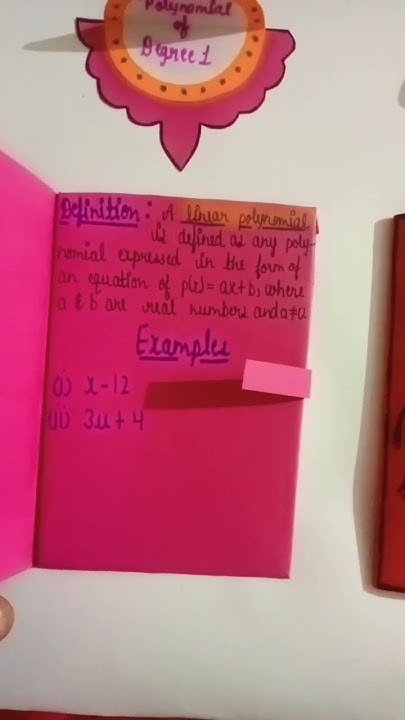 Polynomial
of
Degree 1
Definition: A linear polynomial
is defined as any poly-
nomial expressed in the form of
an equation of p(x)= ax+b, where
a & b are real numbers and a≠0.
Examples
(i) x-12
(ii) 3u+4